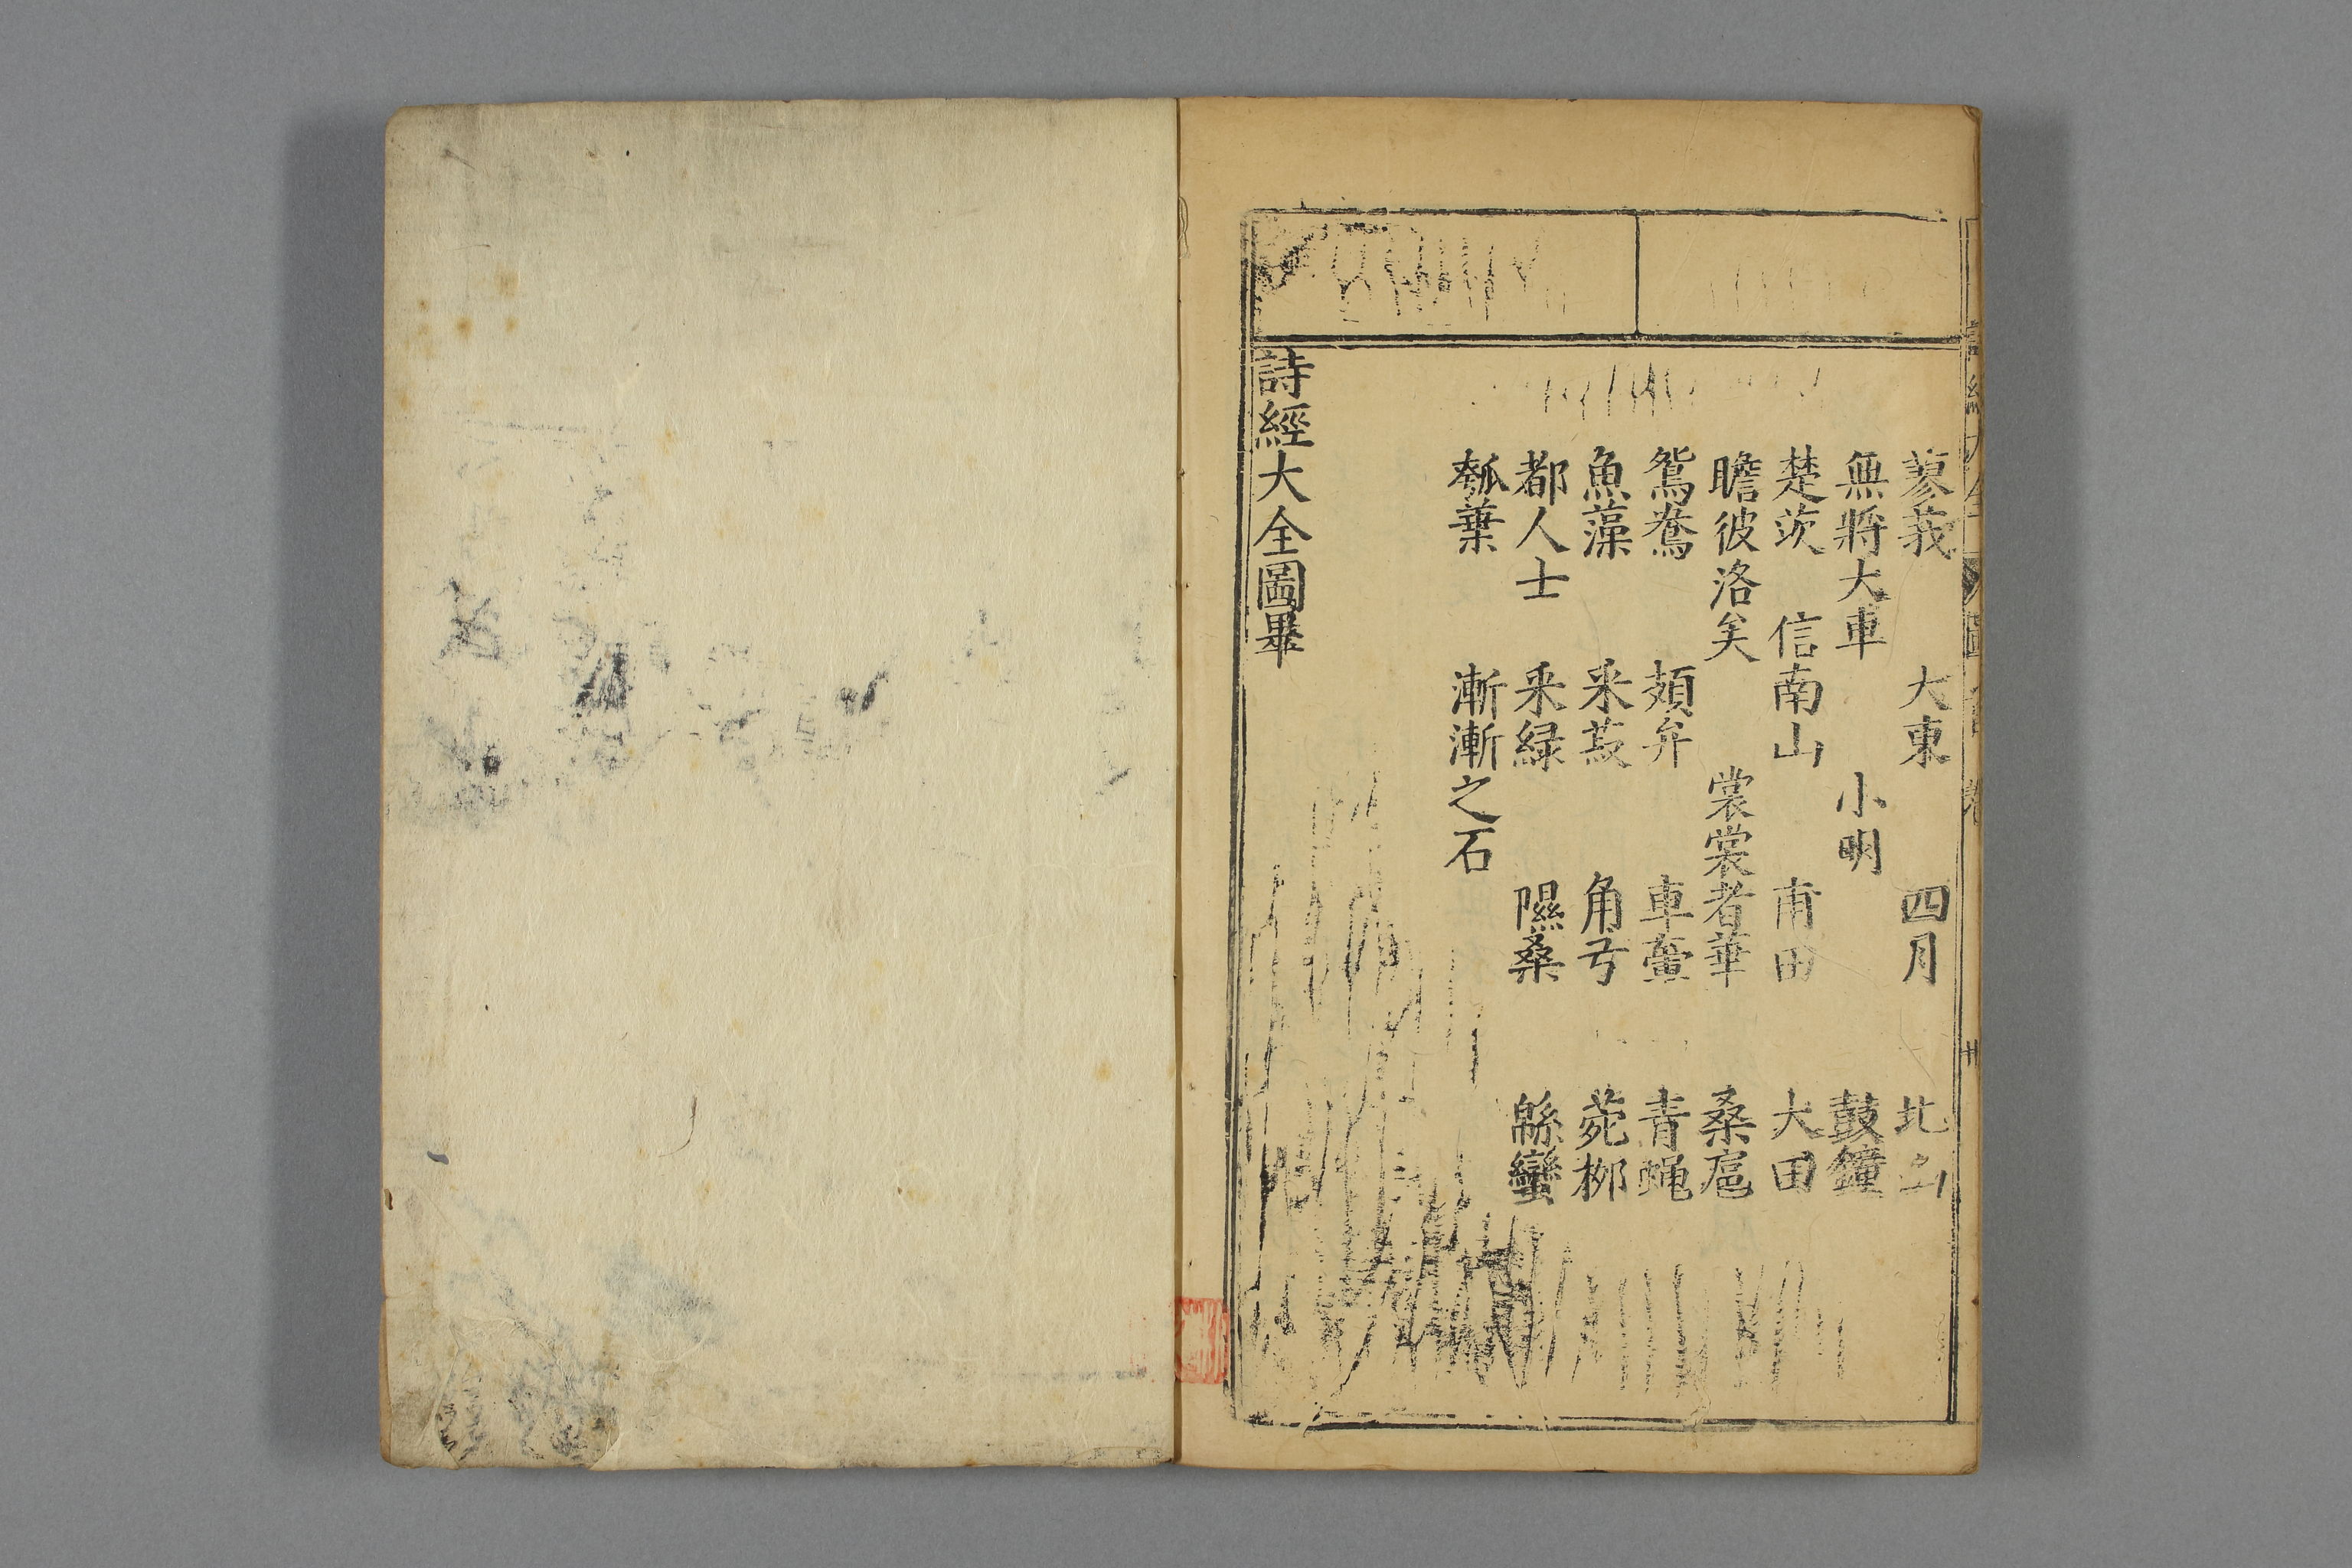 蓼莪　大東　四月　北山
無將大車　小明　鼓鐘
楚茨　信南山　甫田　大田
瞻彼洛矣　裳裳者華　桑扈
鴛鴦　頍弁　車舝　青蝿
魚藻　采菽　角弓　菀柳
都人士　采緑　隰桑　緜蠻
瓠葉　漸漸之石
詩經大全圖畢